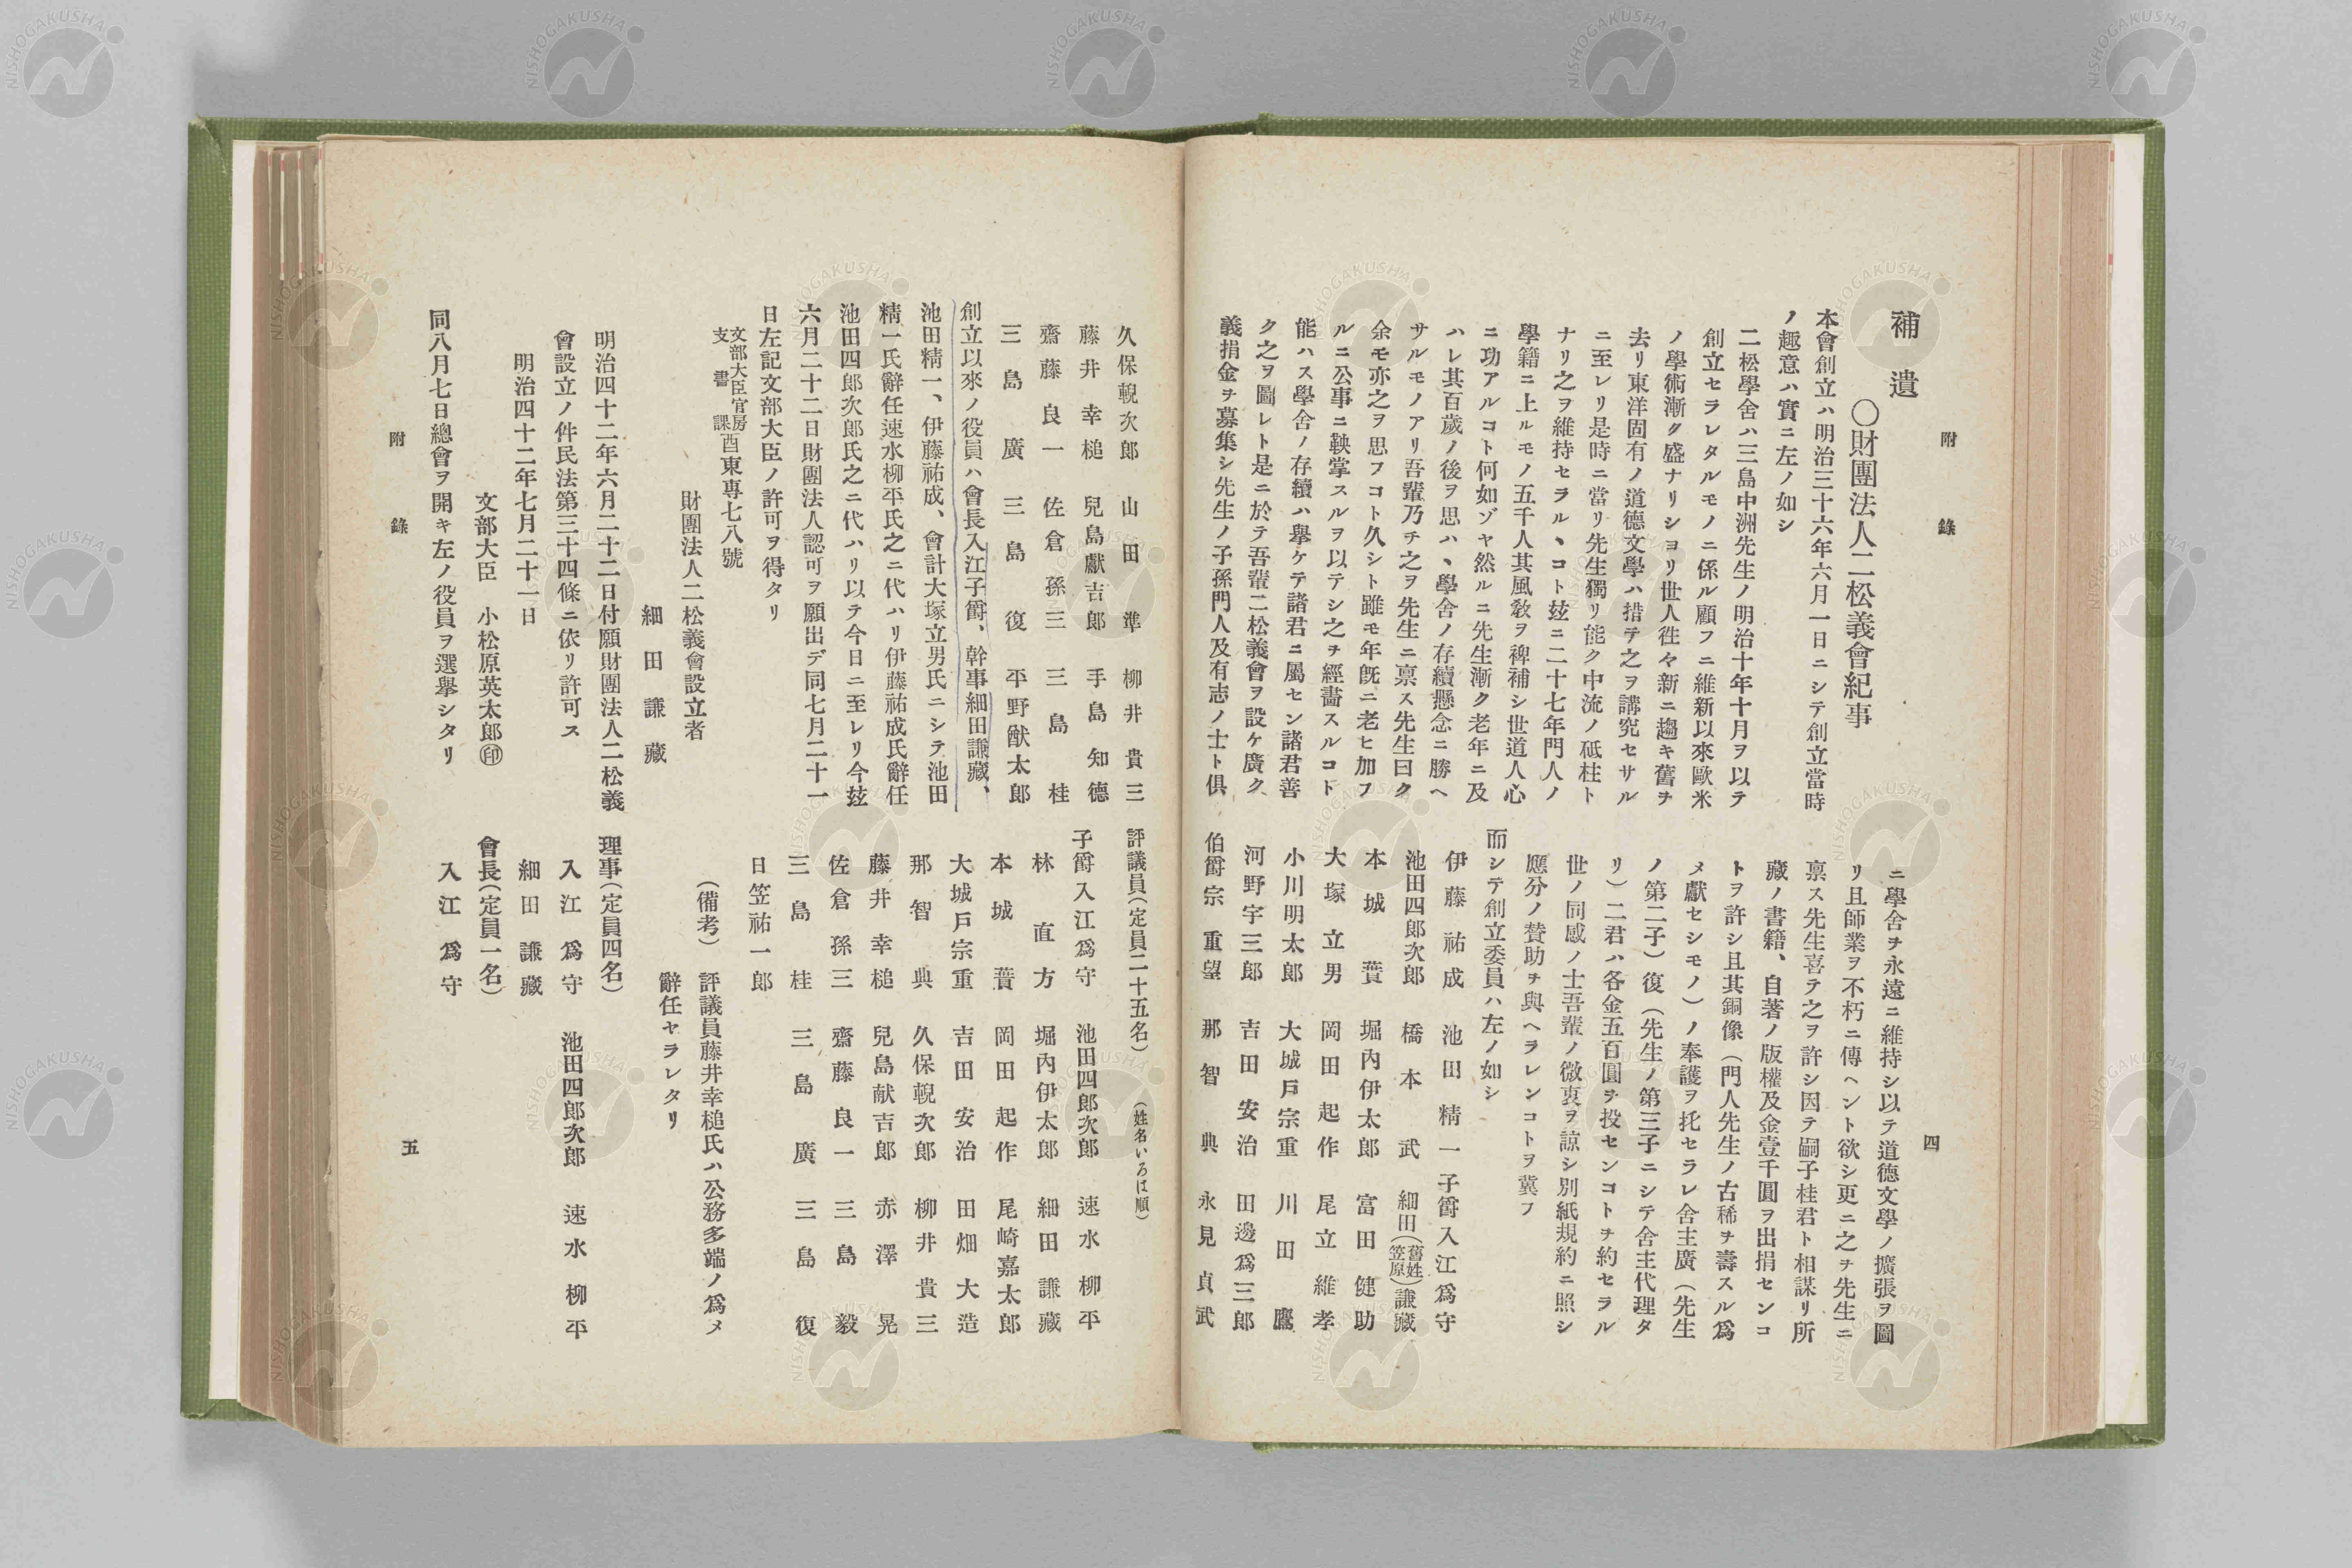 附錄
四
補遺
〇財團法人二松義會紀事
本會創立ハ明治三十六年六月一日ニシテ創立當時
ノ趣意ハ實ニ左ノ如シ
二松學舍ハ三島中洲先生ノ明治十年十月ヲ以テ
創立セラレタルモノニ係ル顧フニ維新以來歐米
ノ學術漸ク盛ナリシヨリ世人徃々新ニ趨キ舊ヲ
去リ東洋固有ノ道德文學ハ措テ之ヲ講究セサル
ニ至レリ是時ニ當リ先生獨リ能ク中流ノ砥柱ト
ナリ之ヲ維持セラルヽコト玆ニ二十七年門人ノ
學籍ニ上ルモノ五千人其風敎ヲ裨補シ世道人心
ニ功アルコト何如ゾヤ然ルニ先生漸ク老年ニ及
ハレ其百歲ノ後ヲ思ハヽ學舍ノ存續懸念ニ勝ヘ
サルモノアリ吾輩乃チ之ヲ先生ニ禀ス先生曰ク
余モ亦之ヲ思フコト久シト雖モ年旣ニ老ヒ加フ
ルニ公事ニ鞅掌スルヲ以テシ之ヲ經畵スルコト
能ハス學舍ノ存續ハ擧ケテ諸君ニ屬セン諸君善
ク之ヲ圖レト是ニ於テ吾輩二松義會ヲ設ケ廣ク
義捐金ヲ募集シ先生ノ子孫門人及有志ノ士ト俱
ニ學舍ヲ永遠ニ維持シ以テ道德文學ノ擴張ヲ圖
リ且師業ヲ不朽ニ傳ヘント欲シ更ニ之ヲ先生ニ
禀ス先生喜テ之ヲ許シ因テ嗣子桂君ト相謀リ所
藏ノ書籍、自著ノ版權及金壹千圓ヲ出捐センコ
トヲ許シ且其銅像（門人先生ノ古稀ヲ壽スル爲
メ獻セシモノ）ノ奉護ヲ托セラレ舍主廣（先生
ノ第二子）復（先生ノ第三子ニシテ舍主代理タ
リ）二君ハ各金五百圓ヲ投センコトヲ約セラル
世ノ同感ノ士吾輩ノ微衷ヲ諒シ別紙規約ニ照シ
應分ノ賛助ヲ與ヘラレンコトヲ冀フ
而シテ創立委員ハ左ノ如シ
伊藤祐成 池田精一 子爵入江爲守
池田四郎次郎 橋本武 細田（舊姓笠原）謙藏
本城蕡 堀內伊太郎 富田健助
大塚立男 岡田起作 尾立維孝
小川明太郎 大城戶宗重 川田鷹
河野宇三郎 吉田安治 田邊爲三郎
伯爵宗重望 那智典 永見貞武
久保輗次郎 山田準 柳井貴三
藤井幸槌 兒島獻吉郎 手島知德
齋藤良一 佐倉孫三 三島桂
三島廣 三島復 平野猷太郎
創立以來ノ役員ハ會長入江子爵、幹事細田謙藏、
池田精一、伊藤祐成、會計大塚立男氏ニシテ池田
精一氏辭任速水柳平氏之ニ代ハリ伊藤祐成氏辭任
池田四郎次郎氏之ニ代ハリ以テ今日ニ至レリ今玆
六月二十二日財團法人認可ヲ願出デ同七月二十一
日左記文部大臣ノ許可ヲ得タリ
文部大臣官房
支書課
酉東專七八號
財團法人二松義會設立者
細田謙藏
明治四十二年六月二十二日付願財團法人二松義
會設立ノ件民法第三十四條ニ依リ許可ス
明治四十二年七月二十一日
文部大臣 小松原英太郎㊞
同八月七日總會ヲ開キ左ノ役員ヲ選擧シタリ
評議員（定員二十五名）（姓名いろは順）
子爵入江爲守 池田四郎次郎 速水柳平
林直方 堀內伊太郎 細田謙藏
本城蕡 岡田起作 尾崎嘉太郎
大城戶宗重 吉田安治 田畑大造
那智典 久保輗次郎 柳井貴三
藤井幸槌 兒島献吉郎 赤澤晃
佐倉孫三 齋藤良一 三島毅
三島桂 三島廣 三島復
日笠祐一郎
（備考） 評議員藤井幸槌氏ハ公務多端ノ爲メ
辭任ヤラレタリ
理事（定員四名）
入江爲守 池田四郎次郎 速水柳平
細田謙藏
會長（定員一名）
入江爲守
附錄
五